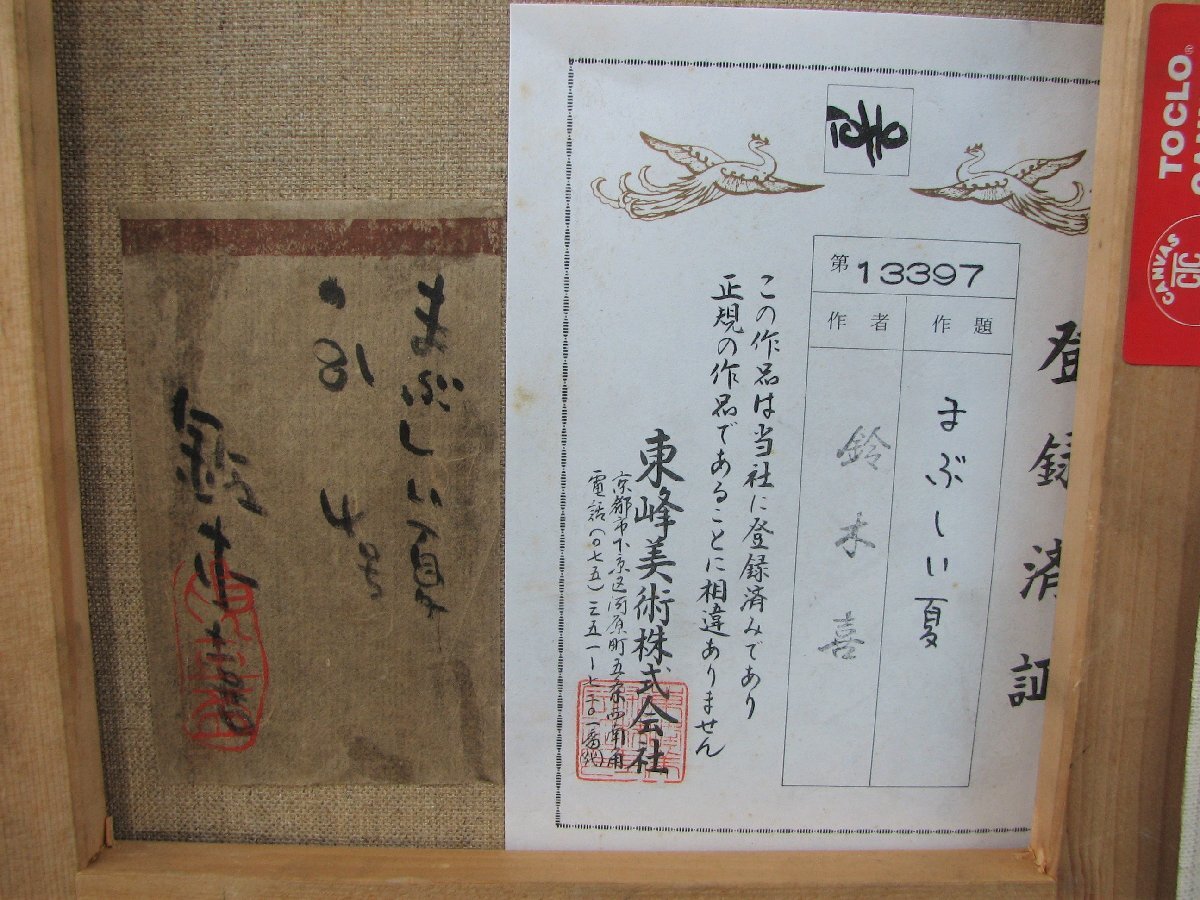 登録済証
第13397
作題
まぶしい夏
作者
鈴木喜
この作品は当社に登録済みであり
正規の作品であることに相違ありません
東峰美術株式会社
京都市下京区河原町五条西南角
電話(〇七五)三五一ー七三〇一番代)
TOCLO
CANVAS
CTC
まぶしい夏
'81 4号
鈴木